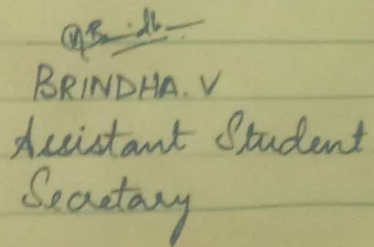 BRINDHA. V
Assistant Student
Secretary